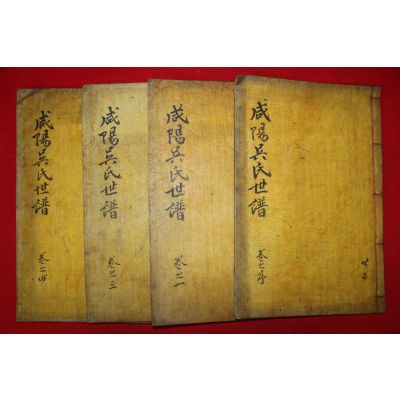 咸陽吳氏世譜
卷之序
咸陽吳氏世譜
卷之一
咸陽吳氏世譜
卷之三
咸陽吳氏世譜
卷之四